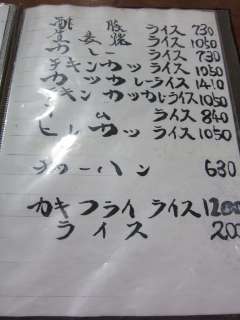 酢豚 ライス 730
ライス 1050
カレー ライス 730
チキンカツ ライス 1050
カツカレーライス 1410
チキンカツカレーライス 1050
ライス 840
ヒレカツ ライス 1050
チャーハン 630
カキフライライス 1200
ライス 200